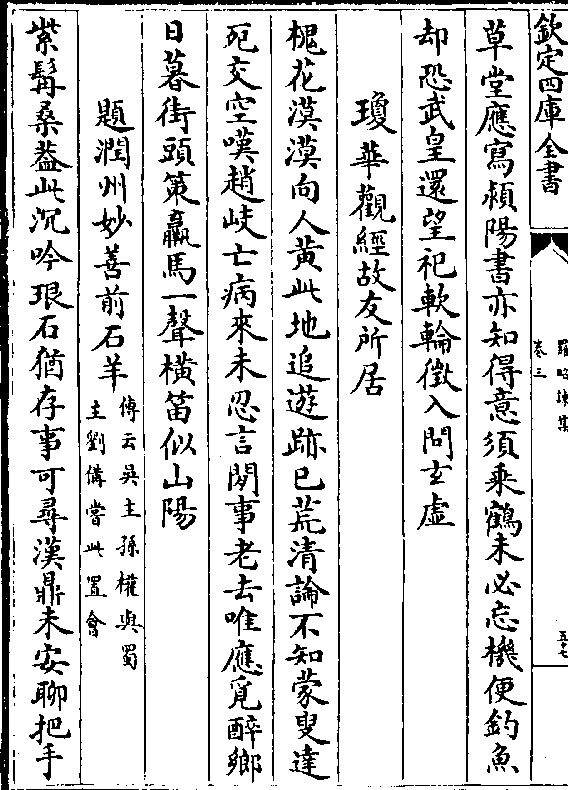 欽定四庫全書
羅昭諫集
卷三
五七
草堂應寫頮陽書亦知得意須乘鶴未必忘機便釣魚
却恐武皇還望祀軟輪徵入問玄虛
瓊華觀經故友所居
槐花漠漠向人黄此地追遊跡已荒清論不知蒙叟達
死交空嘆趙岐亡病來未忍言閒事老去唯應覓醉鄉
日暮街頭策羸馬一聲橫笛似山陽
題潤州妙善前石羊
傳云吳主孫權與蜀
主劉備嘗此置會
紫髯桑蓋此沉吟琅石猶存事可尋漢鼎未安聊把手